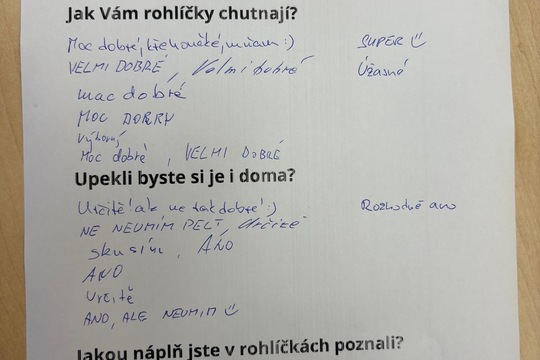 Jak Vám rohlíčky chutnají?
Moc dobré, křehoučké, mňam :) SUPER
VELMI DOBRÉ, Velmi dobré Úžasné
moc dobré
MOC DOBRÝ
Výborný
Moc dobré, VELMI DOBRÉ
Upekli byste si je i doma?
Určitě! ale ne tak dobré :) Rozhodně ano
NE NEUMÍM PÉCT, Určitě
skusím, ÁNO
ANO
Určitě
ANO, ALE NEUMÍM
Jakou náplň jste v rohlíčkách poznali?